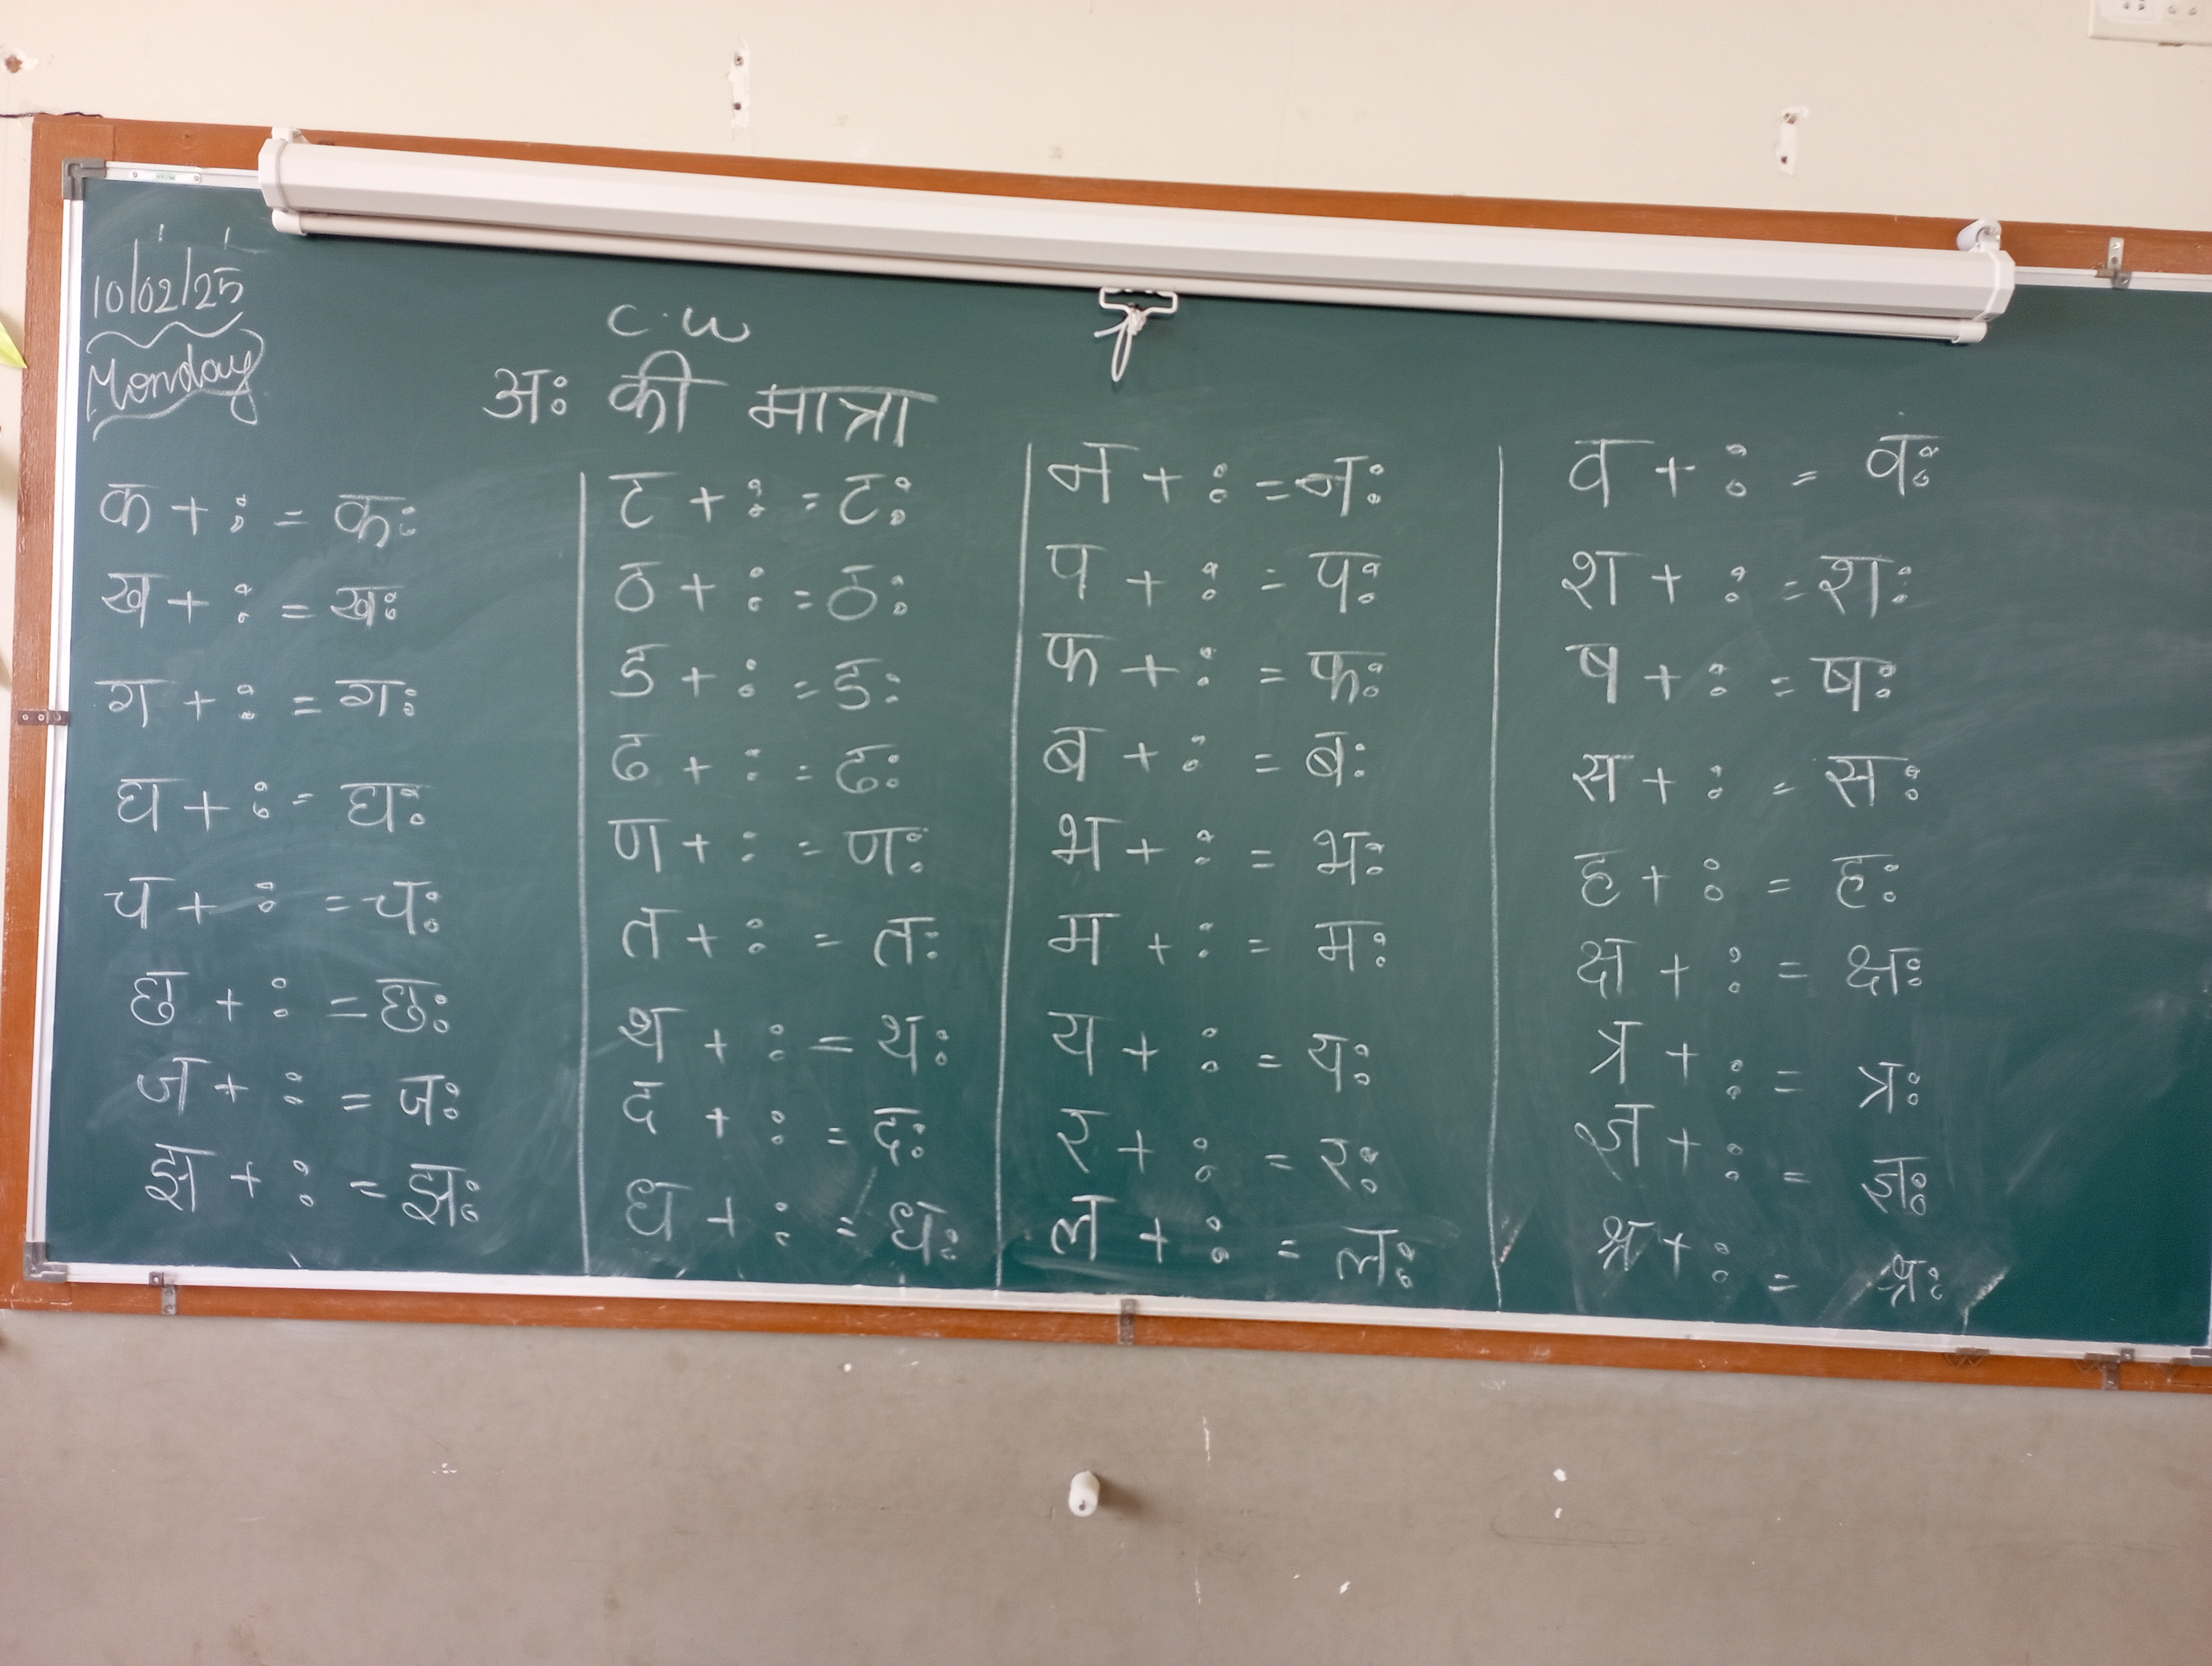 10/02/25
Monday
C.W
अः की मात्रा
क + ः = कः
ख + ः = खः
ग + ः = गः
घ + ः = घः
च + ः = चः
छ + ः = छः
ज + ः = जः
झ + ः = झः
ट + ः = टः
ठ + ः = ठः
ड + ः = डः
ढ + ः = ढः
ण + ः = णः
त + ः = तः
थ + ः = थः
द + ः = दः
ध + ः = धः
न + ः = नः
प + ः = पः
फ + ः = फः
ब + ः = बः
भ + ः = भः
म + ः = मः
य + ः = यः
र + ः = रः
ल + ः = लः
व + ः = वः
श + ः = शः
ष + ः = षः
स + ः = सः
ह + ः = हः
क्ष + ः = क्षः
त्र + ः = त्रः
ज्ञ + ः = ज्ञः
श्र + ः = श्रः